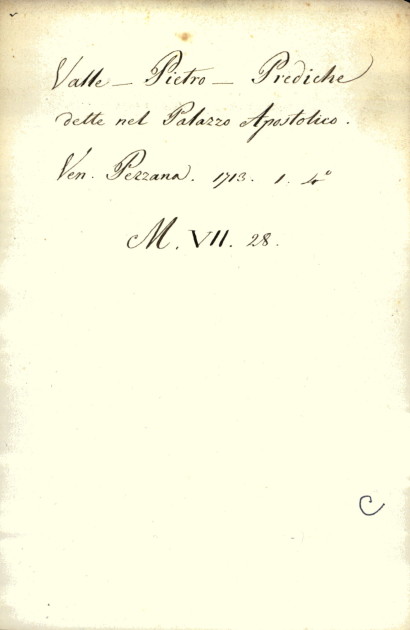 Valle — Pietro — Prediche
dette nel Palazzo Apostolico.
Ven. Pezzana. 1713. 1. 4°
M. VII. 28.
C